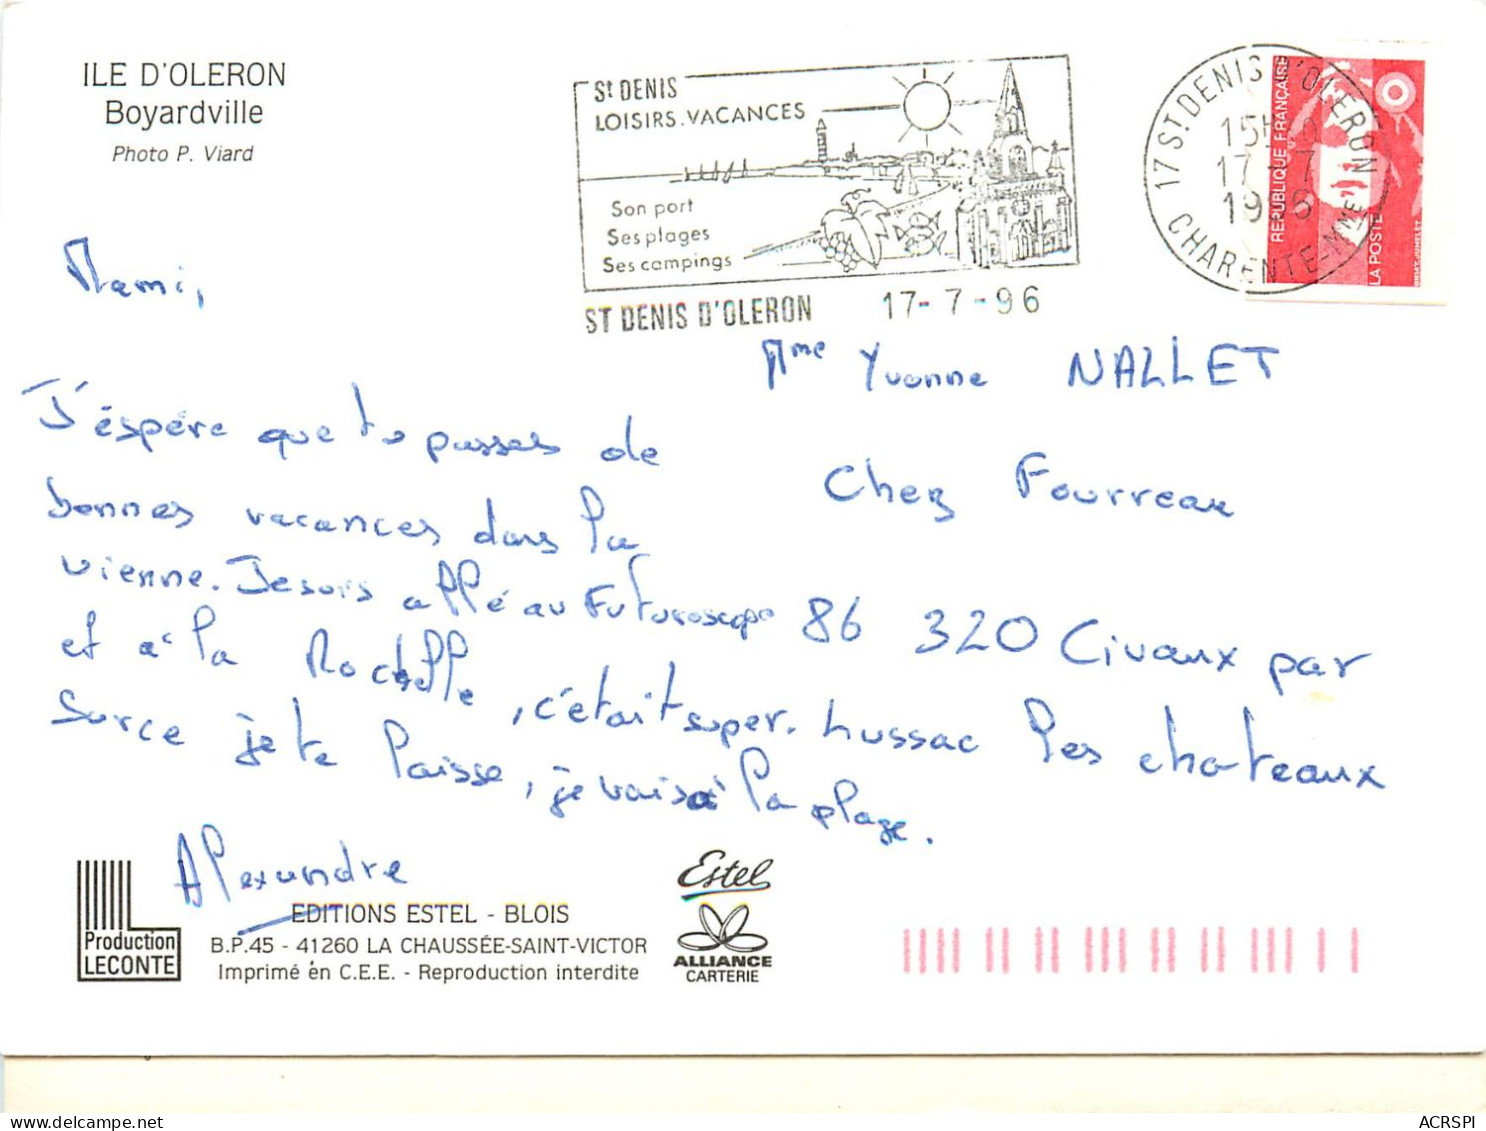 ILE D'OLERON
Boyardville
Photo P. Viard
St DENIS
LOISIRS.VACANCES
Son port
Ses plages
Ses campings
ST DENIS D'OLERON 17-7-96
17 St DENIS D'OLERON
17-7
1996
CHARENTE-MME
REPUBLIQUE FRANÇAISE
LA POSTE
Mami,
J'éspére que tu passes de
bonnes vacances dans la
vienne. Je suis allé au Futuroscope
et à la Rochelle, c'était super.
Surce je te laisse, je vais à la plage.
Alexandre
Mme Yvonne NALLET
Chez Fourreau
86 320 Civaux par
Lussac les chateaux
Production
LECONTE
EDITIONS ESTEL - BLOIS
B.P.45 - 41260 LA CHAUSSÉE-SAINT-VICTOR
Imprimé en C.E.E. - Reproduction interdite
Estel
ALLIANCE
CARTERIE
ACRSPI